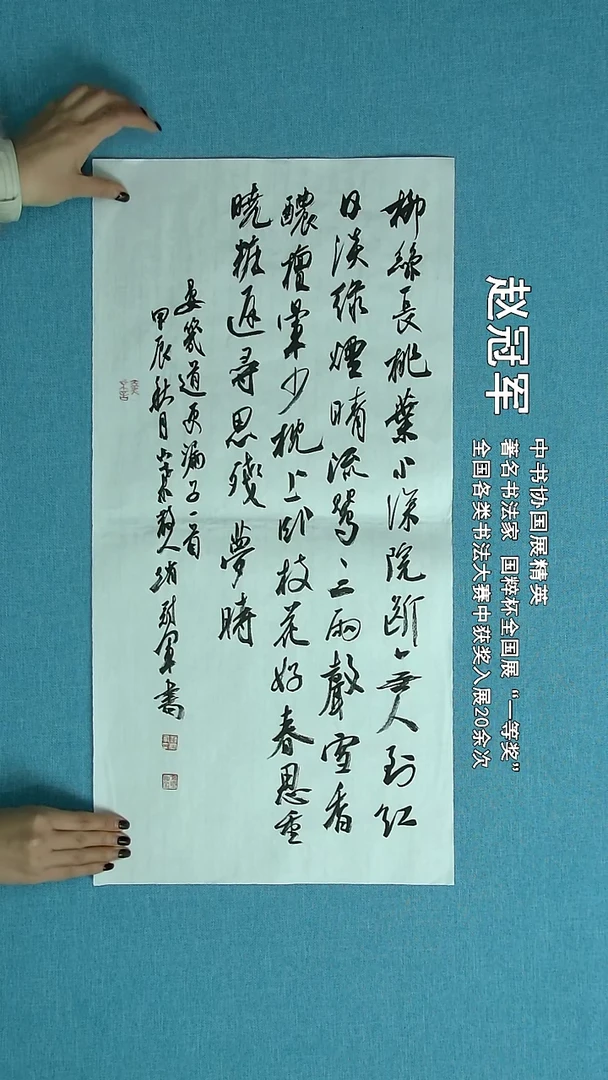 柳絲長桃葉小深院斷無人到紅
日淡綠煙晴流鶯三兩聲雪香
醲檀暈少枕上卧枝花好春思重
曉粧遲尋思殘夢時
晏幾道更漏子一首
甲辰秋月散人趙冠軍書
赵冠军
中书协国展精英
著名书法家 国粹杯全国展“一等奖”
全国各类书法大赛中获奖入展20余次